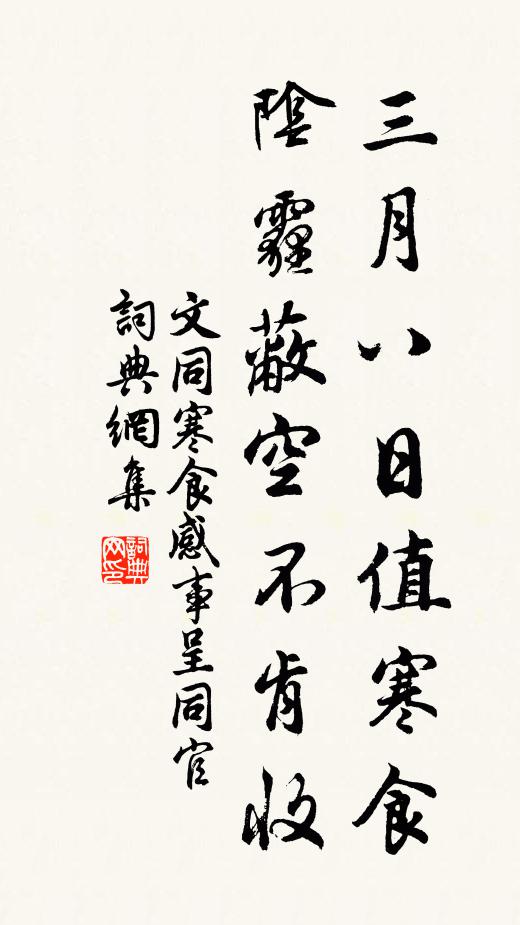 三月八日值寒食
陰霾蔽空不肯收
文同寒食感事呈同官
詞典網集
詞典网印